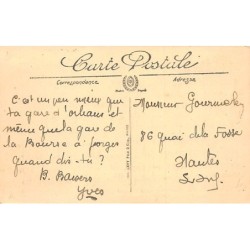 Carte Postale
Correspondance
Adresse
C'est un peu mieux que ta
gare d'Orléans et
même que la gare de
la Bourse à
quand dis-tu ?
B. Baisers
Yves
Monsieur
86 quai de la Fosse
Nantes